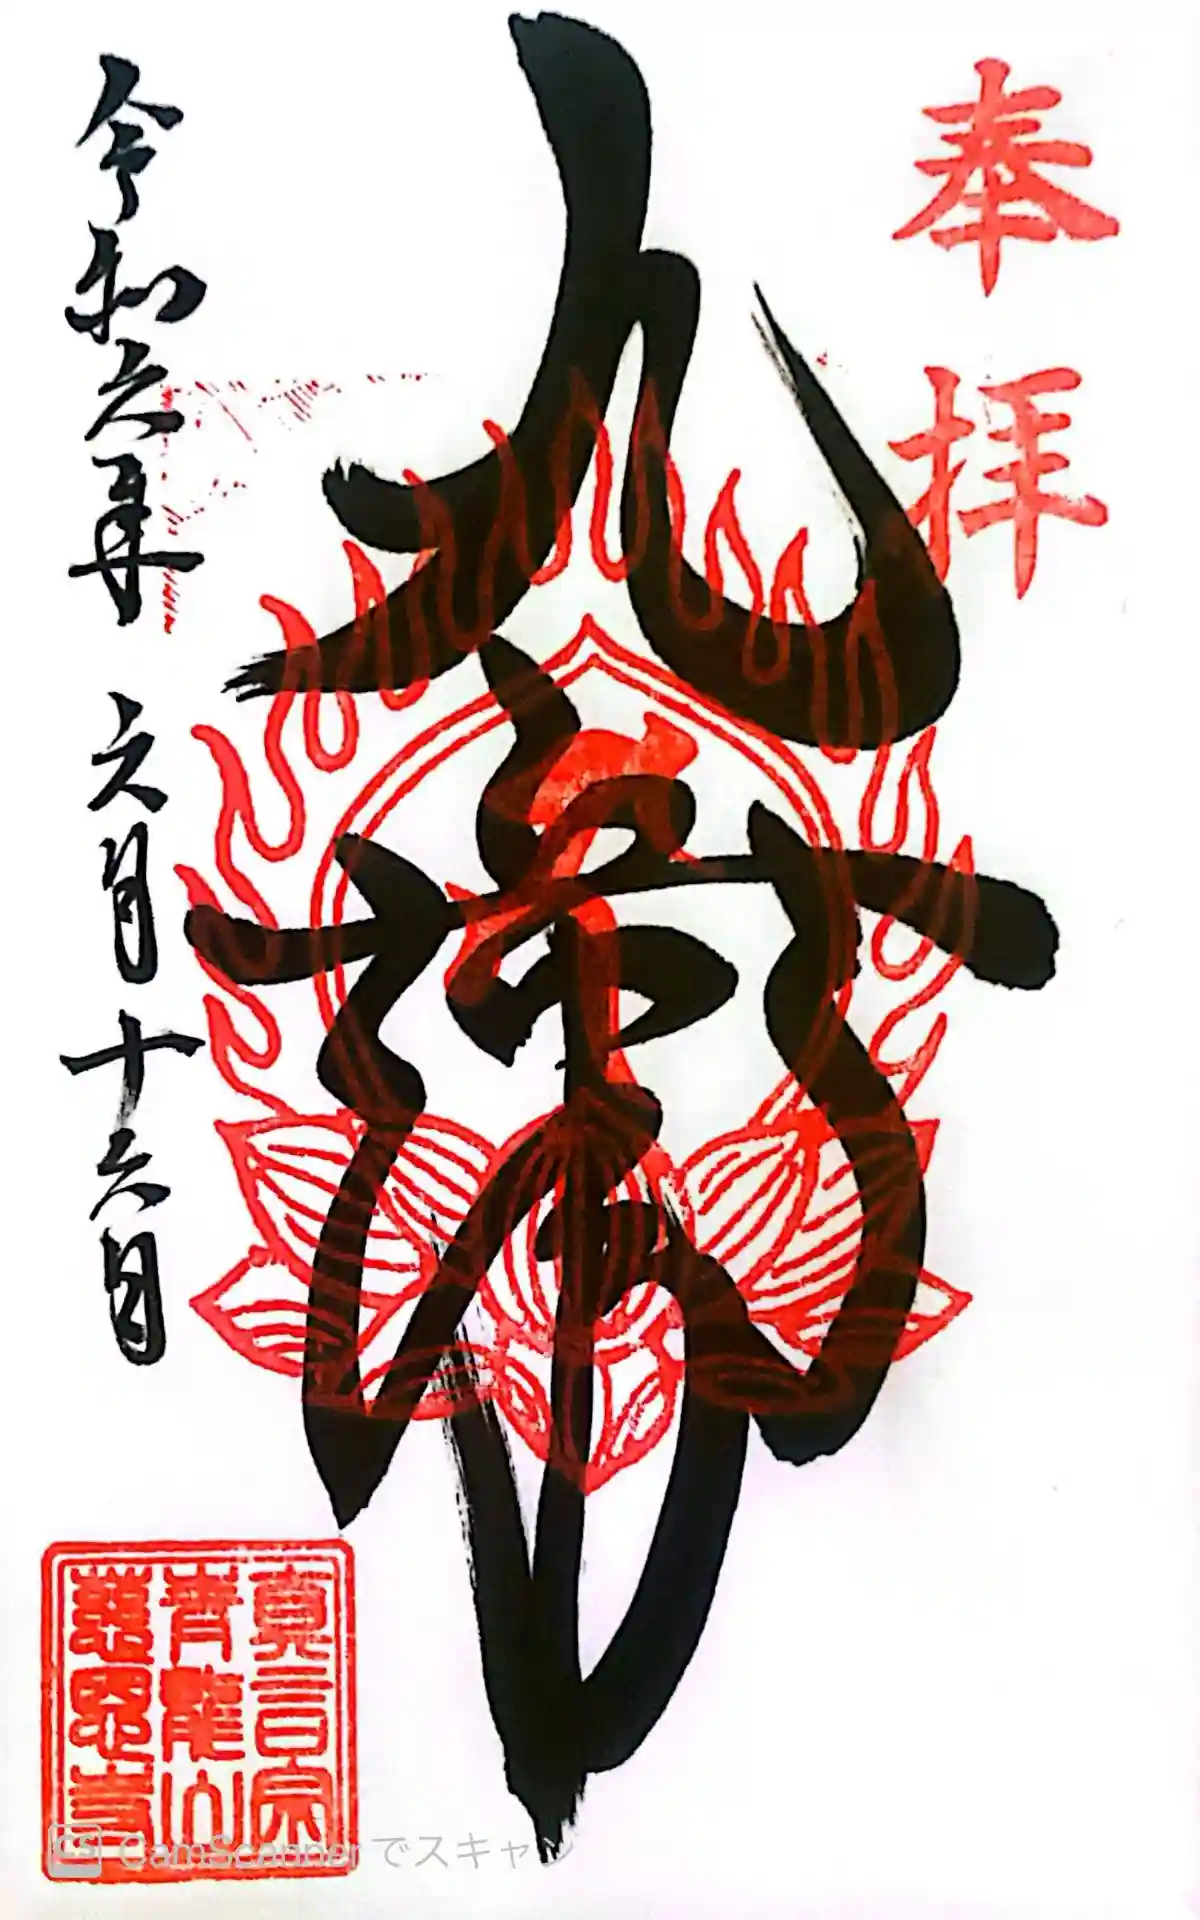 奉拝
令和六年 六月十六日
真言宗
青龍山
慈恩寺
CS CamScannerでスキャン